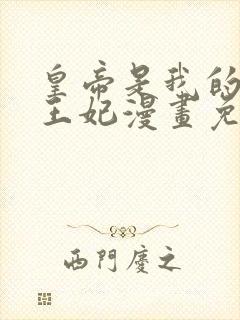 皇帝是我的
王妃漫畫免
西門慶之